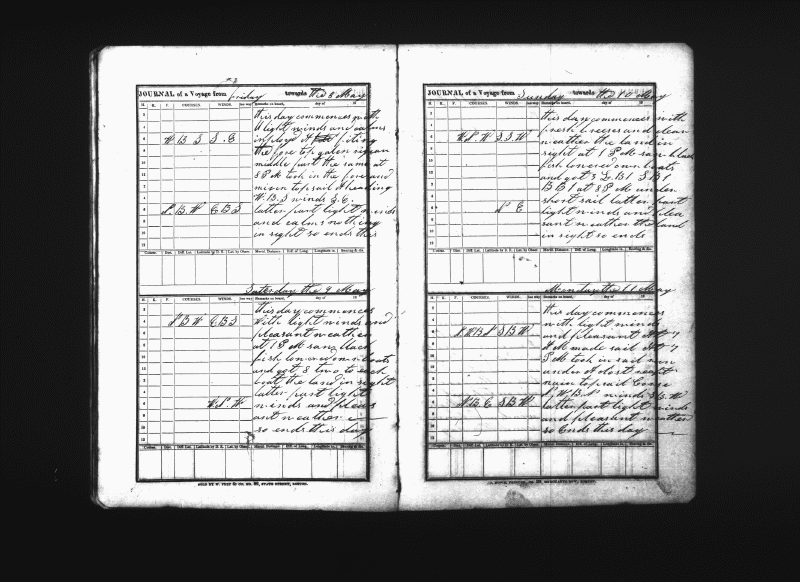 JOURNAL of a Voyage from Friday towards the 8 May
H. K. F. COURSES. WINDS. Lee way Remarks on board, day of 18
this day commences with
light winds and calms
W B S S. E
the fore top galen sail
middle part the same at
8 P M took in the fore and
mizen top sail heading
W. B. S winds S. E.
N. B. W E B S latter part light winds
and calms nothing
in sight so ends this
Course. Dist. Diff Lat. Latitude by D. R. Lat. by Obser. Merid. Distance. Diff. of Long. Longitude in. Bearing & dis.
Saterday the 9 May
H. K. F. COURSES. WINDS. Lee way Remarks on board, day of 18
this day commences
N B W E B S With light winds and
pleasant weather
at 1 P M saw black
fish lowered our boats
and got 8 two to each
boat the land in sight
latter part light
W. N. W winds and pleas
ant weather
so ends this day
Course. Dist. Diff Lat. Latitude by D. R. Lat. by Obser. Merid. Distance. Diff. of Long. Longitude in. Bearing & dis.
SOLD BY
STATE STREET, BOSTON.
JOURNAL of a Voyage from Sunday towards the 10 May
H. K. F. COURSES. WINDS. Lee way Remarks on board, day of 18
this day commences with
fresh breeses and clear
W. N. W S. S. W weather the land in
sight at 1 P M saw black
fish lowered our boats
and got 3 L. B 1 S B 1
B B 1 at 8 P M under
short sail latter part
N E light winds and plea
sant weather the land
in sight so ends
Course. Dist. Diff Lat. Latitude by D. R. Lat. by Obser. Merid. Distance. Diff. of Long. Longitude in. Bearing & dis.
Monday the 11 May
H. K. F. COURSES. WINDS. Lee way Remarks on board, day of 18
this day commences
with light winds
N W B N S B W and pleasant At 7
A M made sail At 7
P M took in sail run
under close reeft
main top sail Course
N. W. B. N winds S. B. W
N. B. E S B W latter part light winds
and pleasent weather
so Ends this day
Course. Dist. Diff Lat. Latitude by D. R. Lat. by Obser. Merid. Distance. Diff. of Long. Longitude in. Bearing & dis.